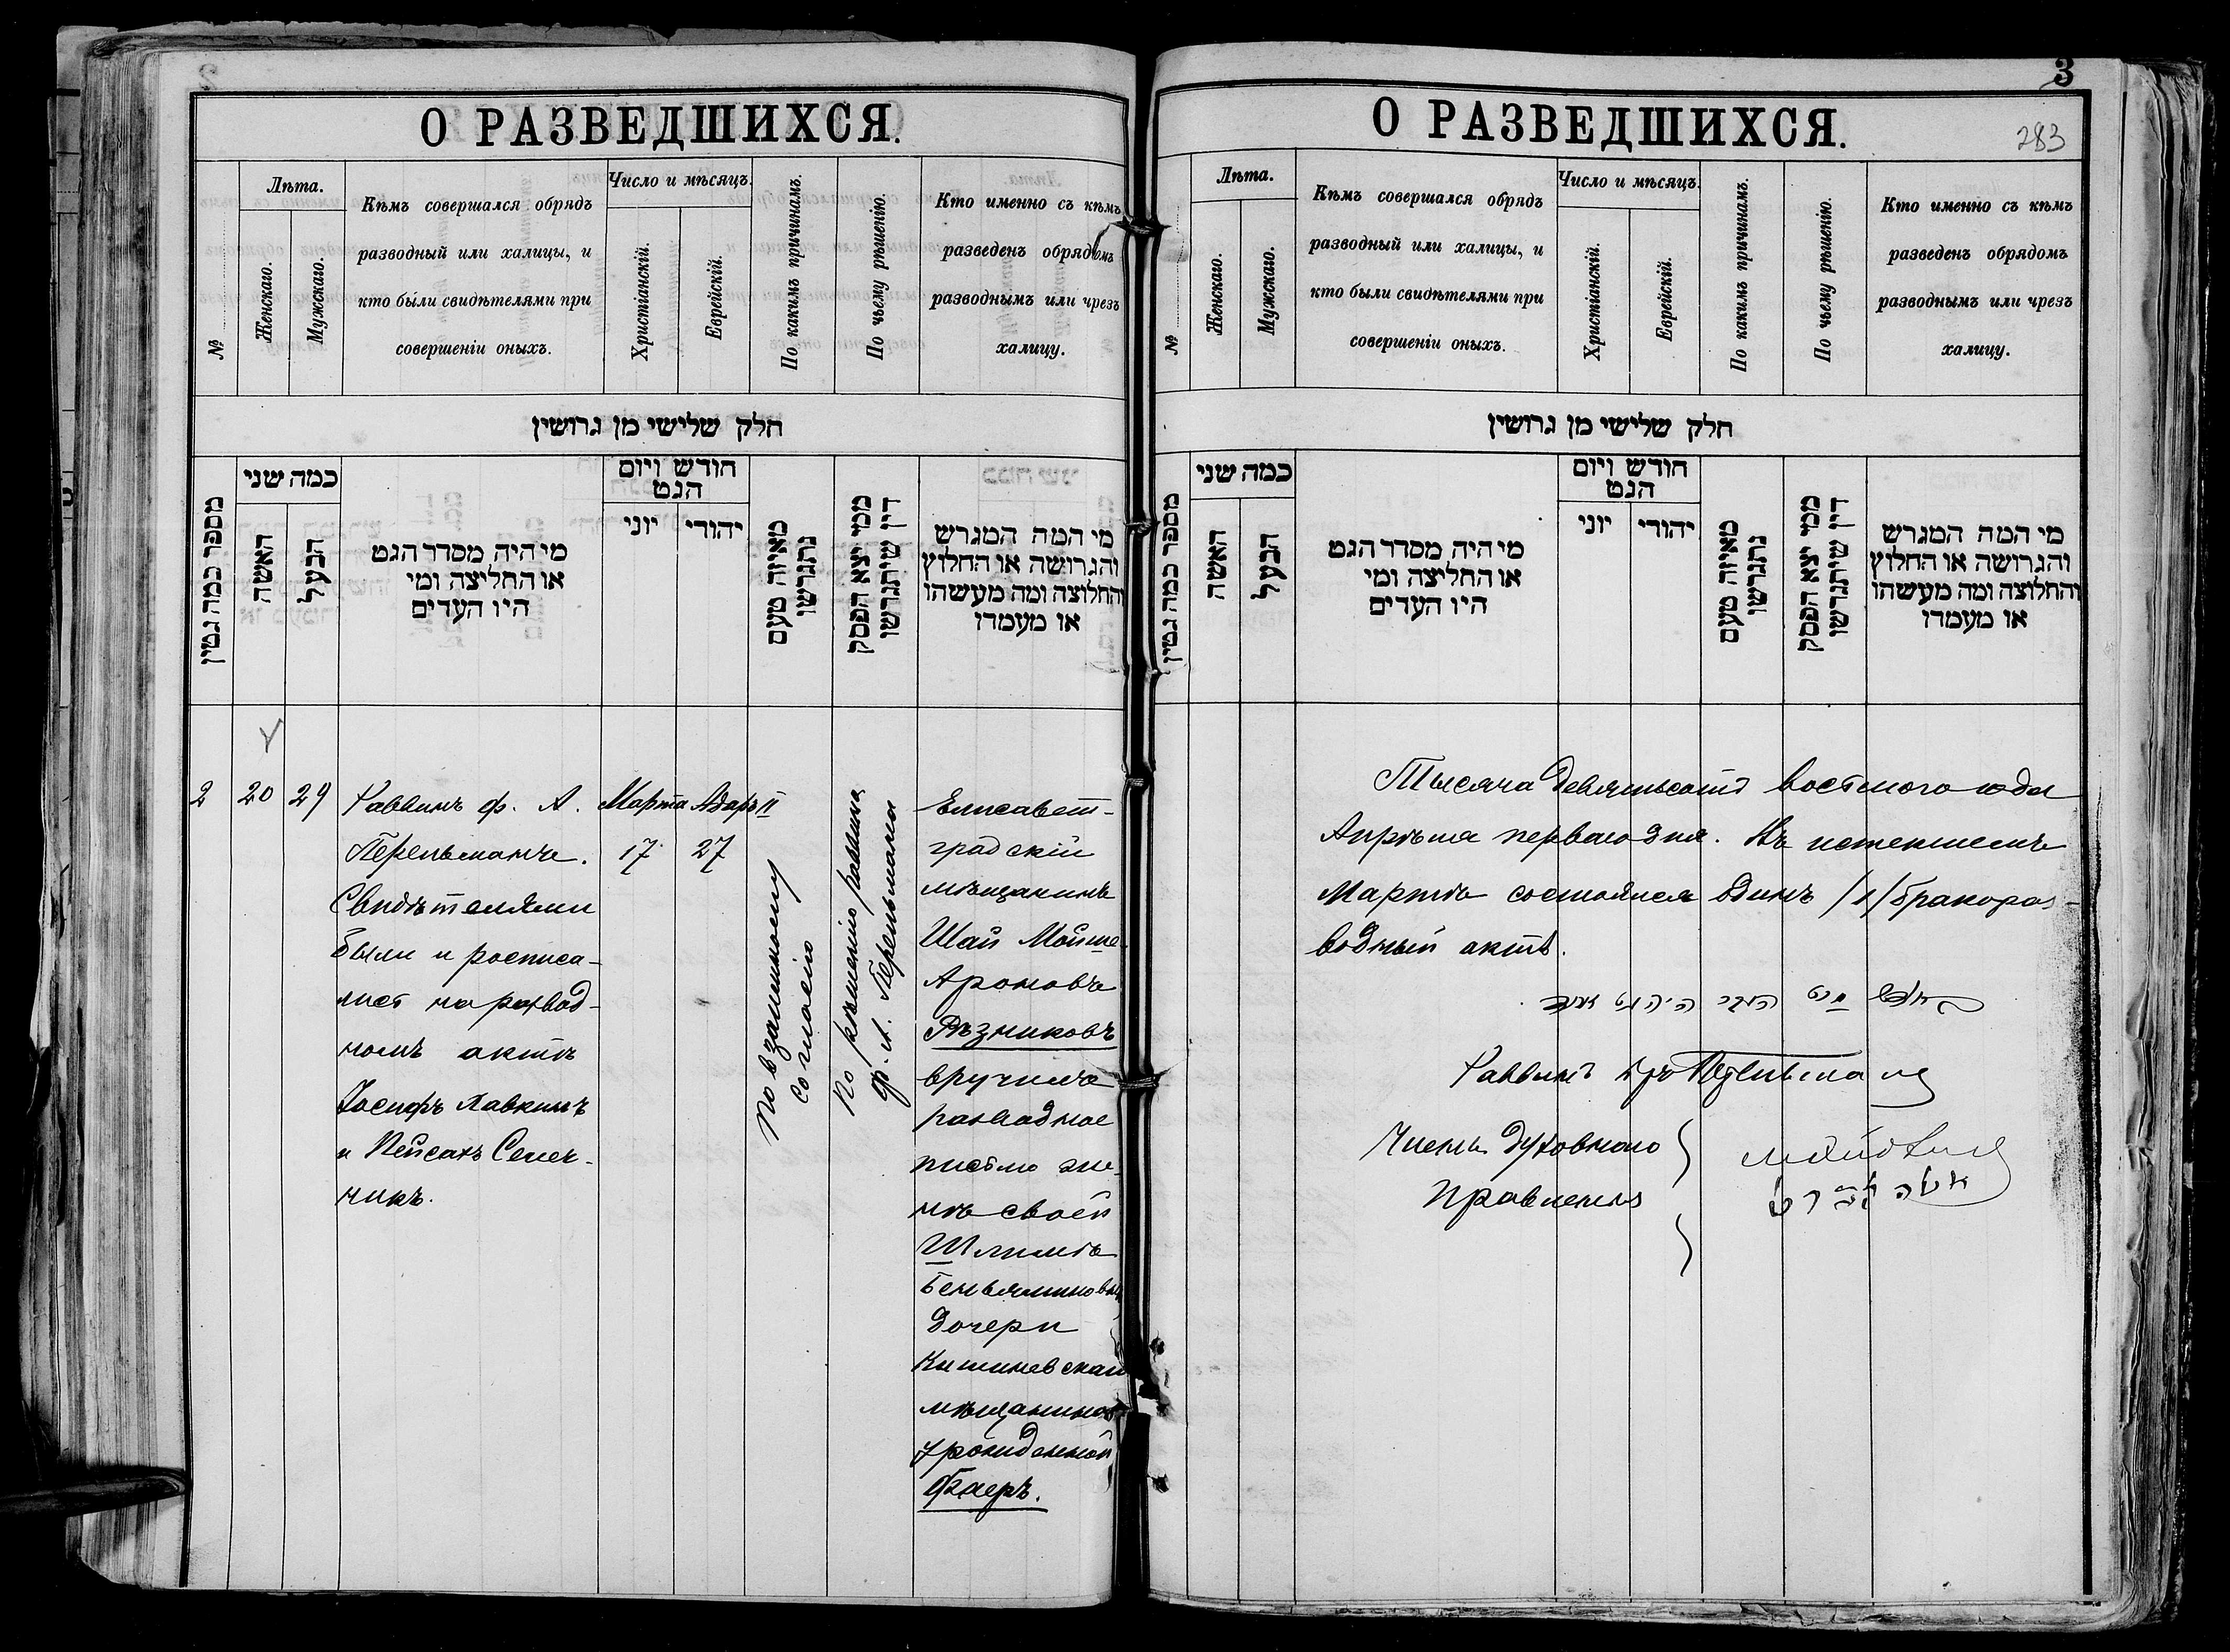 О РАЗВЕДШИХСЯ.
№
Лѣта.
Женскаго.
Мужскаго.
Кѣмъ совершался обрядъ
разводный или халицы, и
кто были свидѣтелями при
совершеніи оныхъ.
Число и мѣсяцъ.
Христіанскій.
Еврейскій.
По какимъ причинамъ.
По чьему рѣшенію.
Кто именно съ кѣмъ
разведенъ обрядомъ
разводнымъ или чрезъ
халицу.
חלק שלישי מן גרושין
מספר כמה גטין
כמה שני
האשה
הבעל
מי היה מסדר הגט
או החליצה ומי
היו העדים
חודש ויום
הגט
יוני
יהודי
מאיזה טעם
נתגרשו
ממי יצא הפסק
דין שיתגרשו
מי המה המגרש
והגרושה או החלוץ
והחלוצה ומה מעשהו
או מעמדו
2
20
29
Раввинъ ф. А.
Перельманъ.
Свидѣтелями
были и росписа-
лись на развод-
номъ актѣ
Іосифъ Лавкинъ
и Пейсахъ Селеч-
никъ.
Марта
17
Адаръ II
27
По взаимному
согласію
По рѣшенію раввина
ф. А. Перельмана
Елисавет-
градскій
мѣщанинъ
Шая Мойше
Ароновъ
Рѣзниковъ
вручилъ
разводное
письмо же-
нѣ своей
Шлимѣ
Беньяминовнѣ
дочери
Кишиневскаго
мѣщанина
урожденной
Фаеръ.
3
283
О РАЗВЕДШИХСЯ.
№
Лѣта.
Женскаго.
Мужскаго.
Кѣмъ совершался обрядъ
разводный или халицы, и
кто были свидѣтелями при
совершеніи оныхъ.
Число и мѣсяцъ.
Христіанскій.
Еврейскій.
По какимъ причинамъ.
По чьему рѣшенію.
Кто именно съ кѣмъ
разведенъ обрядомъ
разводнымъ или чрезъ
халицу.
חלק שלישי מן גרושין
מספר כמה גטין
כמה שני
האשה
הבעל
מי היה מסדר הגט
או החליצה ומי
היו העדים
חודש ויום
הגט
יוני
יהודי
מאיזה טעם
נתגרשו
ממי יצא הפסק
דין שיתגרשו
מי המה המגרש
והגרושה או החלוץ
והחלוצה ומה מעשהו
או מעמדו
Тысяча девятьсотъ восьмого года
Апрѣля перваго дня. Въ истекшемъ
Мартѣ состоялся одинъ /1/ бракораз-
водный актъ.
Раввинъ Перельманъ
Члены духовнаго
правленія